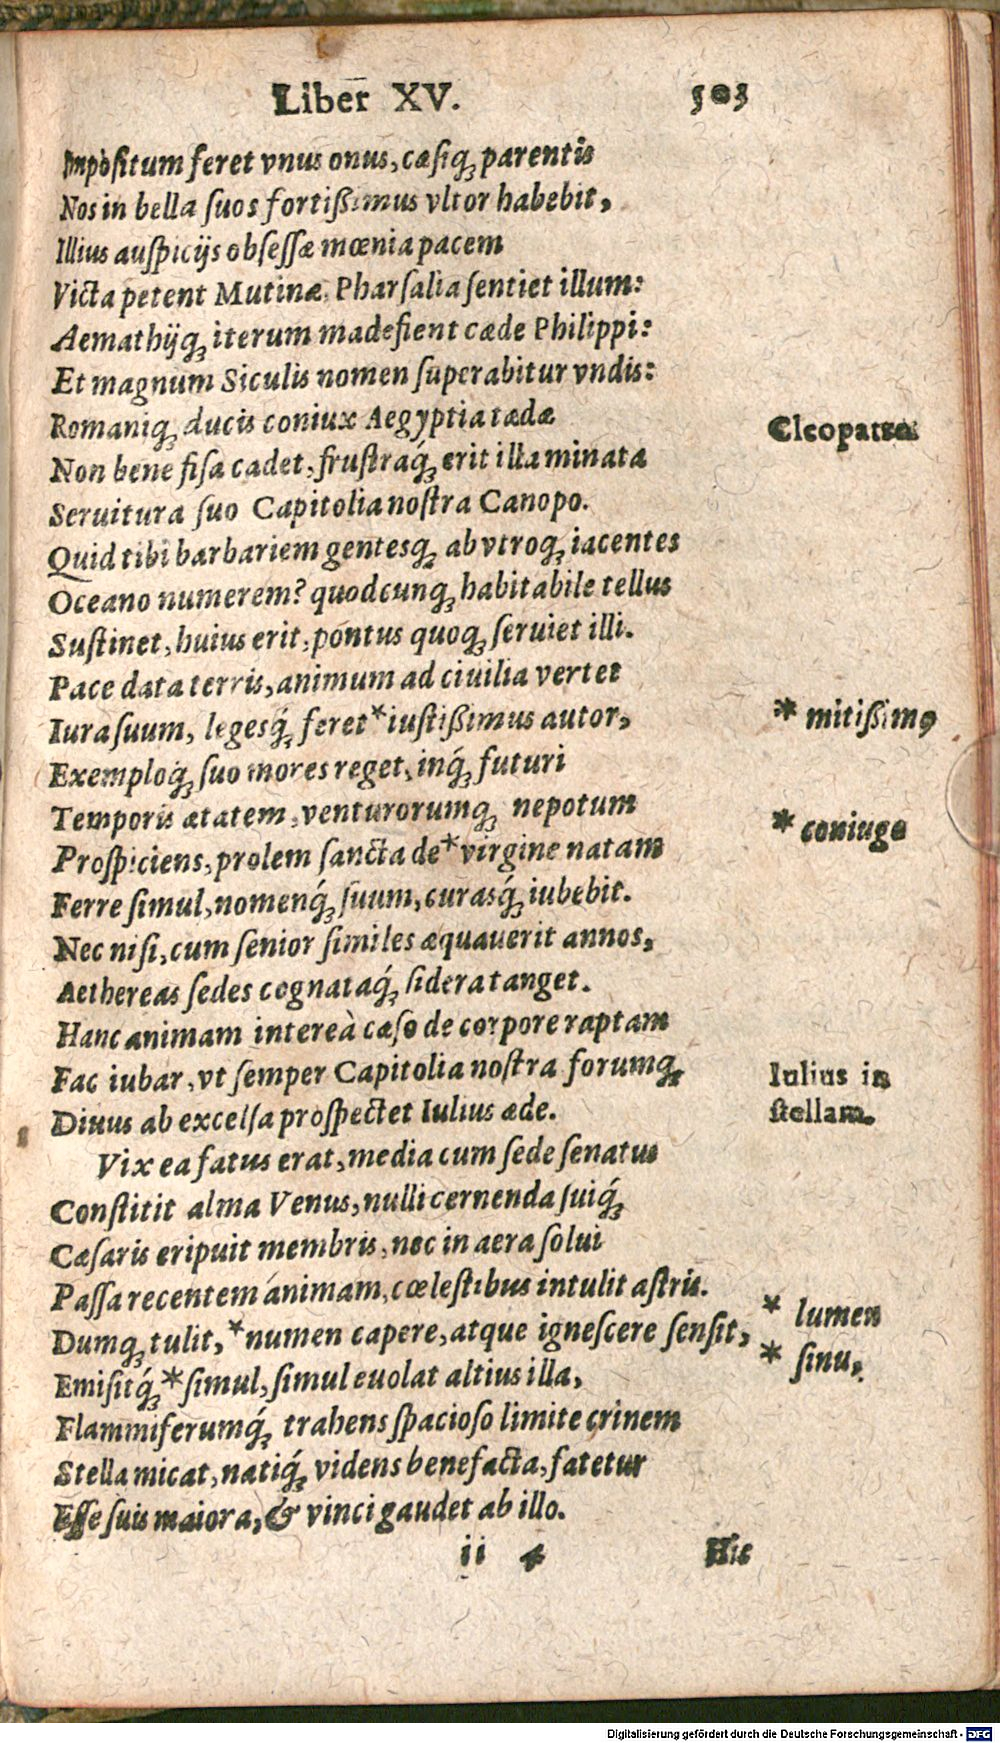 Liber XV. 503
Impositum feret vnus onus, cæsiq́; parentis
Nos in bella ſuos fortißimus vltor habebit,
Illius auſpicijs obſeſſæ mœnia pacem
Victa petent Mutinæ, Pharſalia ſentiet illum:
Aemathijq; iterum madefient cæde Philippi:
Et magnum Siculis nomen ſuperabitur vndis:
Romaniq; ducis coniux Aegyptia tædæ
Cleopatra.
Non bene fiſa cadet, fruſtraq́; erit illa minata
Seruitura ſuo Capitolia noſtra Canopo.
Quid tibi barbariem gentesq; ab vtroq; iacentes
Oceano numerem? quodcunq; habitabile tellus
Suſtinet, huius erit, pontus quoq; ſeruiet illi.
Pace data terris, animum ad ciuilia vertet
Iura ſuum, legesq́; feret *iuſtißimus autor,
* mitißimꝰ
Exemploq; ſuo mores reget, inq́; futuri
Temporis ætatem, venturorumq; nepotum
* coniuge
Proſpiciens, prolem ſancta de *virgine natam
Ferre ſimul, nomenq́; ſuum, curasq́; iubebit.
Nec niſi, cum ſenior ſimiles æquauerit annos,
Aethereas ſedes cognataq́; ſidera tanget.
Hanc animam intereà cæſo de corpore raptam
Fac iubar, vt ſemper Capitolia noſtra forumq;
Iulius in
Diuus ab excelſa proſpectet Iulius æde.
ſtellam.
Vix ea fatus erat, media cum ſede ſenatus
Conſtitit alma Venus, nulli cernenda ſuiq́;
Cæſaris eripuit membris, nec in aera ſolui
Paſſa recentem animam, cœleſtibus intulit aſtris.
* lumen
Dumq; tulit, *numen capere, atque igneſcere ſenſit,
* ſinu,
Emiſitq́; *ſimul, ſimul euolat altius illa,
Flammiferumq́; trahens ſpacioſo limite crinem
Stella micat, natiq́; videns benefacta, fatetur
Eſſe ſuis maiora, & vinci gaudet ab illo.
ii 4 Hic
Digitalisierung gefördert durch die Deutsche Forschungsgemeinschaft - DFG